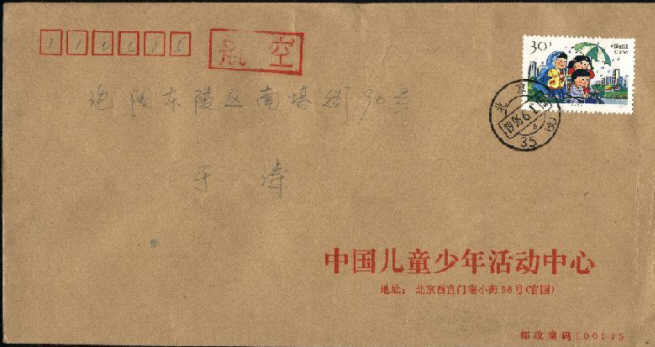 110015
航空
30分
中国邮政
沈阳东陵区南塔街90号
于涛
北京
1996.6.1
35
中国儿童少年活动中心
地址：北京西直门南小街68号(官园)
邮政编码:100035